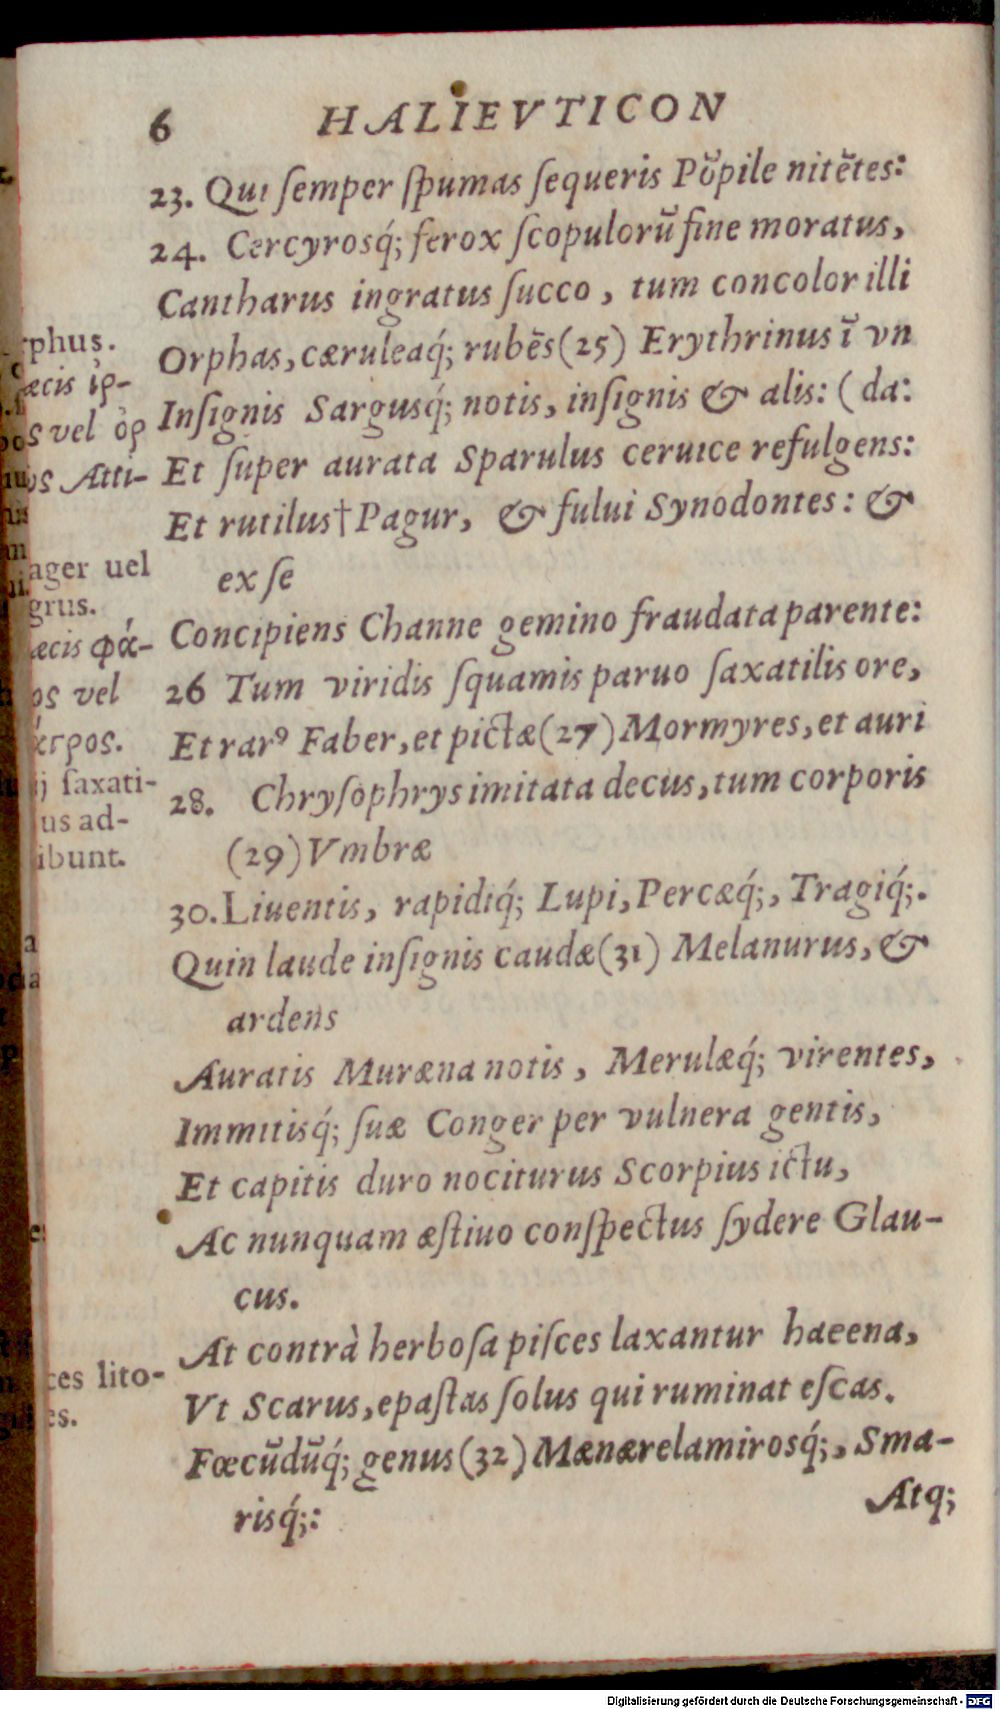 6 HALIEVTICON
23. Qui ſemper ſpumas ſequeris Põpile nitẽtes:
24. Cercyrosq́; ferox ſcopulorũ fine moratus,
Cantharus ingratus ſucco, tum concolor illi
Orphas, cæruleaq́; rubẽs (25) Erythrinus ĩ vn
Inſignis Sargusq́; notis, inſignis & alis: (da:
Et ſuper aurata Sparulus ceruice refulgens:
Et rutilus† Pagur, & fului Synodontes: &
ex ſe
Concipiens Channe gemino fraudata parente:
26 Tum viridis ſquamis paruo ſaxatilis ore,
Et rarꝰ Faber, et pictæ (27) Mormyres, et auri
28. Chryſophrys imitata decus, tum corporis
(29) Vmbræ
30. Liuentis, rapidiq́; Lupi, Percæq́;, Tragiq́;.
Quin laude inſignis caudæ (31) Melanurus, &
ardens
Auratis Muræna notis, Merulæq́; virentes,
Immitisq́; ſuæ Conger per vulnera gentis,
Et capitis duro nociturus Scorpius ictu,
Ac nunquam æſtiuo conſpectus ſydere Glau-
cus.
At contrà herboſa piſces laxantur haeena,
Vt Scarus, epaſtas ſolus qui ruminat eſcas.
Fœcũdũq́; genus (32) Mænærelamirosq́;, Sma-
risq́;:
Atq;
phus.
æcis ὀρ-
ος vel ὀρ
ος Atti-
ager uel
grus.
æcis φά-
ος vel
άγρος.
ij ſaxati-
us ad-
ibunt.
ces lito-
es.
Digitalisierung gefördert durch die Deutsche Forschungsgemeinschaft - DFG